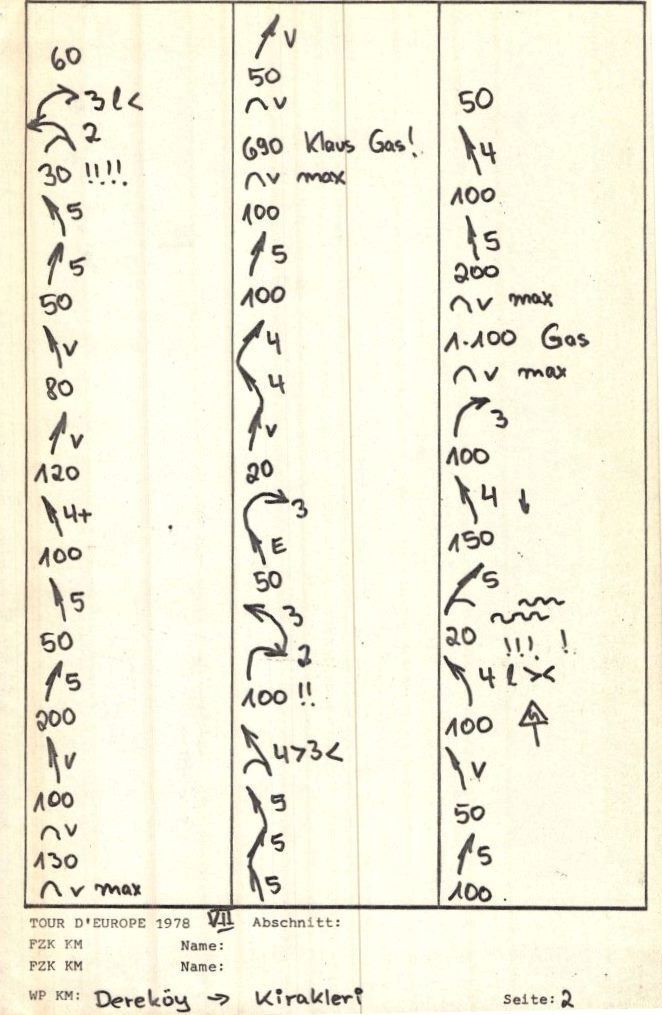 60
3 l <
2
30 !!!!
5
5
50
v
80
v
120
4+
100
5
50
5
200
v
100
v
130
v max
v
50
v
690 Klaus Gas!
v max
100
5
100
4
4
v
20
3
E
50
3
2
100 !!
4>3<
5
5
5
50
4
100
5
200
v max
1.100 Gas
v max
3
100
4 ↓
150
5
20 !!! !
4 l ><
100
v
50
5
100
TOUR D'EUROPE 1978 VII Abschnitt:
FZK KM Name:
FZK KM Name:
WP KM: Dereköy → Kirakleri Seite: 2